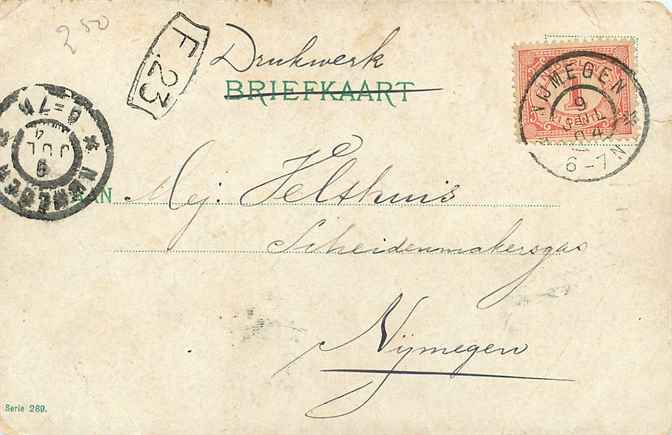 250
F. 23
Drukwerk
BRIEFKAART
NIJMEGEN
9
JUL
04
6-7N
NIJMEGEN
9
JUL
4
6-7N
AAN Mej. Velthuis
Scheidenmakersgas
Nijmegen
Serie 289.